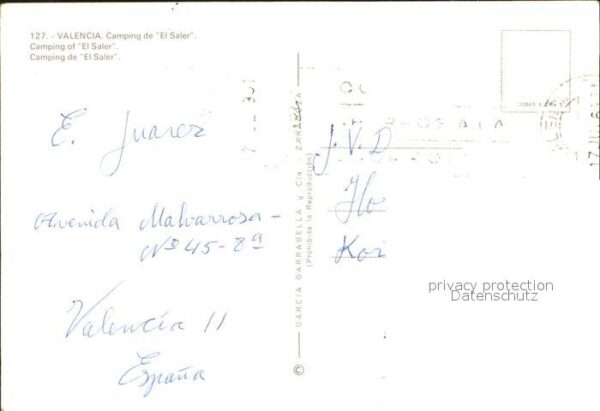 127. - VALENCIA. Camping de "El Saler".
Camping of "El Saler".
Camping de "El Saler".
E. Juarez
Avenida Malvarrosa -
Nº 45-2ª
Valencia 11
España
© GARCIA GARRABELLA y Cia. ZARAGOZA
(Prohibida la Reproducción)
J. V. D
Ilo
Koi
privacy protection
Datenschutz